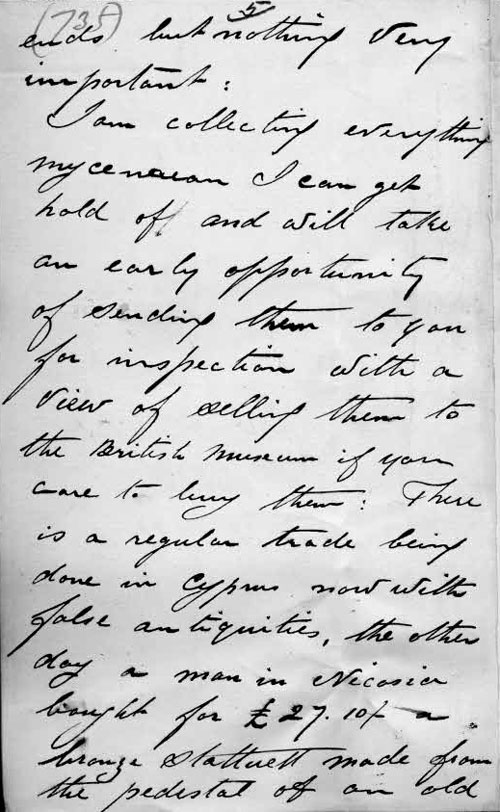 (735)
5
ends but nothing very
important:
I am collecting everything
mycenaean I can get
hold of and will take
an early opportunity
of sending them to you
for inspection with a
view of selling them to
the British Museum if you
care to buy them: There
is a regular trade being
done in Cyprus now with
false antiquities, the other
day a man in Nicosia
bought for £27.10/- a
bronze stattuett made from
the pedestal of an old